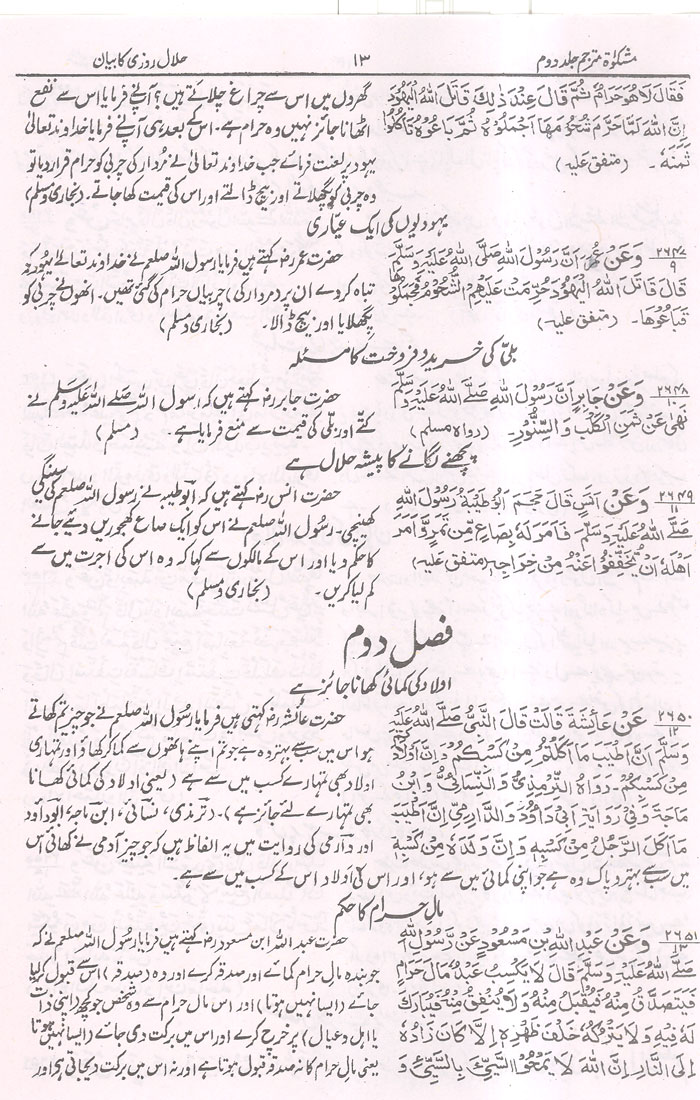 مشکوٰۃ مترجم جلد دوم
۱۳
حلال روزی کا بیان
فَقَالَ لَا هُوَ حَرَامٌ ثُمَّ قَالَ عِنْدَ ذٰلِكَ قَاتَلَ اللّٰهُ الْيَهُوْدَ
اِنَّ اللّٰهَ لَمَّا حَرَّمَ شُحُوْمَهَا اَجْمَلُوْهُ ثُمَّ بَاعُوْهُ فَاَكَلُوْا
ثَمَنَهٗ ۔ (متفق علیہ)
گھروں میں اس سے چراغ جلاتے ہیں؟ آپنے فرمایا اس سے نفع
اٹھانا جائز نہیں وہ حرام ہے۔ اس کے بعد ہی آپنے فرمایا خداوند تعالیٰ
یہود پر لعنت فرمائے جب خداوند تعالیٰ نے مُردار کی چربی کو حرام قرار دیا تو
وہ چربی کو پگھلاتے اور بیچ ڈالتے اور اس کی قیمت کھا جاتے۔ (بخاری و مسلم)
یہودیوں کی ایک عیّاری
۲۶۴۷/۹ وَعَنْ عُمَرَ اَنَّ رَسُوْلَ اللّٰهِ صَلَّى اللّٰهُ عَلَيْهِ وَسَلَّمَ
قَالَ قَاتَلَ اللّٰهُ الْيَهُوْدَ حُرِّمَتْ عَلَيْهِمُ الشُّحُوْمُ فَجَمَلُوْهَا
فَبَاعُوْهَا۔ (متفق علیہ)
حضرت عمر رض کہتے ہیں فرمایا رسول اللہ صلعم نے خداوند تعالےٰ یہود کو
تباہ کردے ان پر (مردار کی) چربیاں حرام کی گئی تھیں۔ انھوں نے چربی کو
پگھلایا اور بیچ ڈالا۔ (بخاری و مسلم)
بلّی کی خرید و فروخت کا مسئلہ
۲۶۴۸/۱۰ وَعَنْ جَابِرٍ اَنَّ رَسُوْلَ اللّٰهِ صَلَّى اللّٰهُ عَلَيْهِ وَسَلَّمَ
نَهٰى عَنْ ثَمَنِ الْكَلْبِ وَالسِّنَّوْرِ۔ (رواہ مسلم)
حضرت جابر رض کہتے ہیں کہ رسول اللہ صلے اللہ علیہ وسلم نے
کتّے اور بلّی کی قیمت سے منع فرمایا ہے۔ (مسلم)
پچھنے لگانے کا پیشہ حلال ہے
۲۶۴۹/۱۱ وَعَنْ اَنَسٍ قَالَ حَجَمَ اَبُوْ طَيْبَةَ رَسُوْلَ اللّٰهِ
صَلَّى اللّٰهُ عَلَيْهِ وَسَلَّمَ فَاَمَرَ لَهٗ بِصَاعٍ مِّنْ تَمْرٍ وَّاَمَرَ
اَهْلَهٗ اَنْ يُّخَفِّفُوْا عَنْهُ مِنْ خَرَاجِهٖ (متفق علیہ)
حضرت انس رض کہتے ہیں کہ ابوطیبہ نے رسول اللہ صلعم کی سینگی
کھینچی۔ رسول اللہ صلعم نے اس کو ایک صاع کھجوریں دیئے جانے
کا حکم دیا اور اس کے مالکوں سے کہا کہ وہ اس کی اجرت میں سے
کم لیا کریں۔ (بخاری و مسلم)
فصل دوم
اولاد کی کمائی کھانا جائز ہے
۲۶۵۰/۱۲ عَنْ عَائِشَةَ قَالَتْ قَالَ النَّبِيُّ صَلَّى اللّٰهُ عَلَيْهِ
وَسَلَّمَ اِنَّ اَطْيَبَ مَا اَكَلْتُمْ مِنْ كَسْبِكُمْ وَاِنَّ اَوْلَادَكُمْ
مِنْ كَسْبِكُمْ۔ رَوَاهُ التِّرْمِذِيُّ وَالنَّسَائِيُّ وَابْنُ
مَاجَةَ وَفِيْ رِوَايَةِ اَبِيْ دَاوٗدَ وَالدَّارِمِيِّ اِنَّ اَطْيَبَ
مَا اَكَلَ الرَّجُلُ مِنْ كَسْبِهٖ وَاِنَّ وَلَدَهٗ مِنْ كَسْبِهٖ
حضرت عائشہ رض کہتی ہیں فرمایا رسول اللہ صلعم نے جو چیز تم کھاتے
ہو اس میں سب سے بہتر وہ ہے جو تم اپنے ہاتھوں سے کما کر کھاؤ اور تمہاری
اولاد بھی تمہارے کسب میں سے ہے (یعنی اولاد کی کمائی کھانا
بھی تمہارے لئے جائز ہے)۔ (ترمذی، نسائی، ابن ماجہ، ابوداؤد
اور دارمی کی روایت میں یہ الفاظ ہیں کہ جو چیز آدمی نے کھائی اس
میں سب سے بہتر و پاک وہ ہے جو اپنی کمائی میں سے ہو، اور اس کی اولاد اس کے کسب میں سے ہے۔
مال حرام کا حکم
۲۶۵۱/۱۳ وَعَنْ عَبْدِ اللّٰهِ بْنِ مَسْعُوْدٍ عَنْ رَّسُوْلِ اللّٰهِ
صَلَّى اللّٰهُ عَلَيْهِ وَسَلَّمَ قَالَ لَا يَكْسِبُ عَبْدٌ مَالَ حَرَامٍ
فَيَتَصَدَّقُ مِنْهُ فَيُقْبَلُ مِنْهُ وَلَا يُنْفِقُ مِنْهُ فَيُبَارَكُ
لَهٗ فِيْهِ وَلَا يَتْرُكُهٗ خَلْفَ ظَهْرِهٖ اِلَّا كَانَ زَادَهٗ
اِلَى النَّارِ اِنَّ اللّٰهَ لَا يَمْحُو السَّيِّئَ بِالسَّيِّئِ وَ
حضرت عبد اللہ ابن مسعود رض کہتے ہیں فرمایا رسول اللہ صلعم نے کہ
جو بندہ مال حرام کمائے اور صدقہ کرے اور وہ (صدقہ) اس سے قبول کرلیا
جائے (ایسا نہیں ہوتا) اور اس مال حرام سے وہ شخص جو کچھ (اپنی ذات
یا اہل و عیال) پر خرچ کرے اور اس میں برکت دی جائے (ایسا نہیں ہوتا
یعنی مال حرام کا نہ صدقہ قبول ہوتا ہے اور نہ اس میں برکت دیجاتی ہے) اور